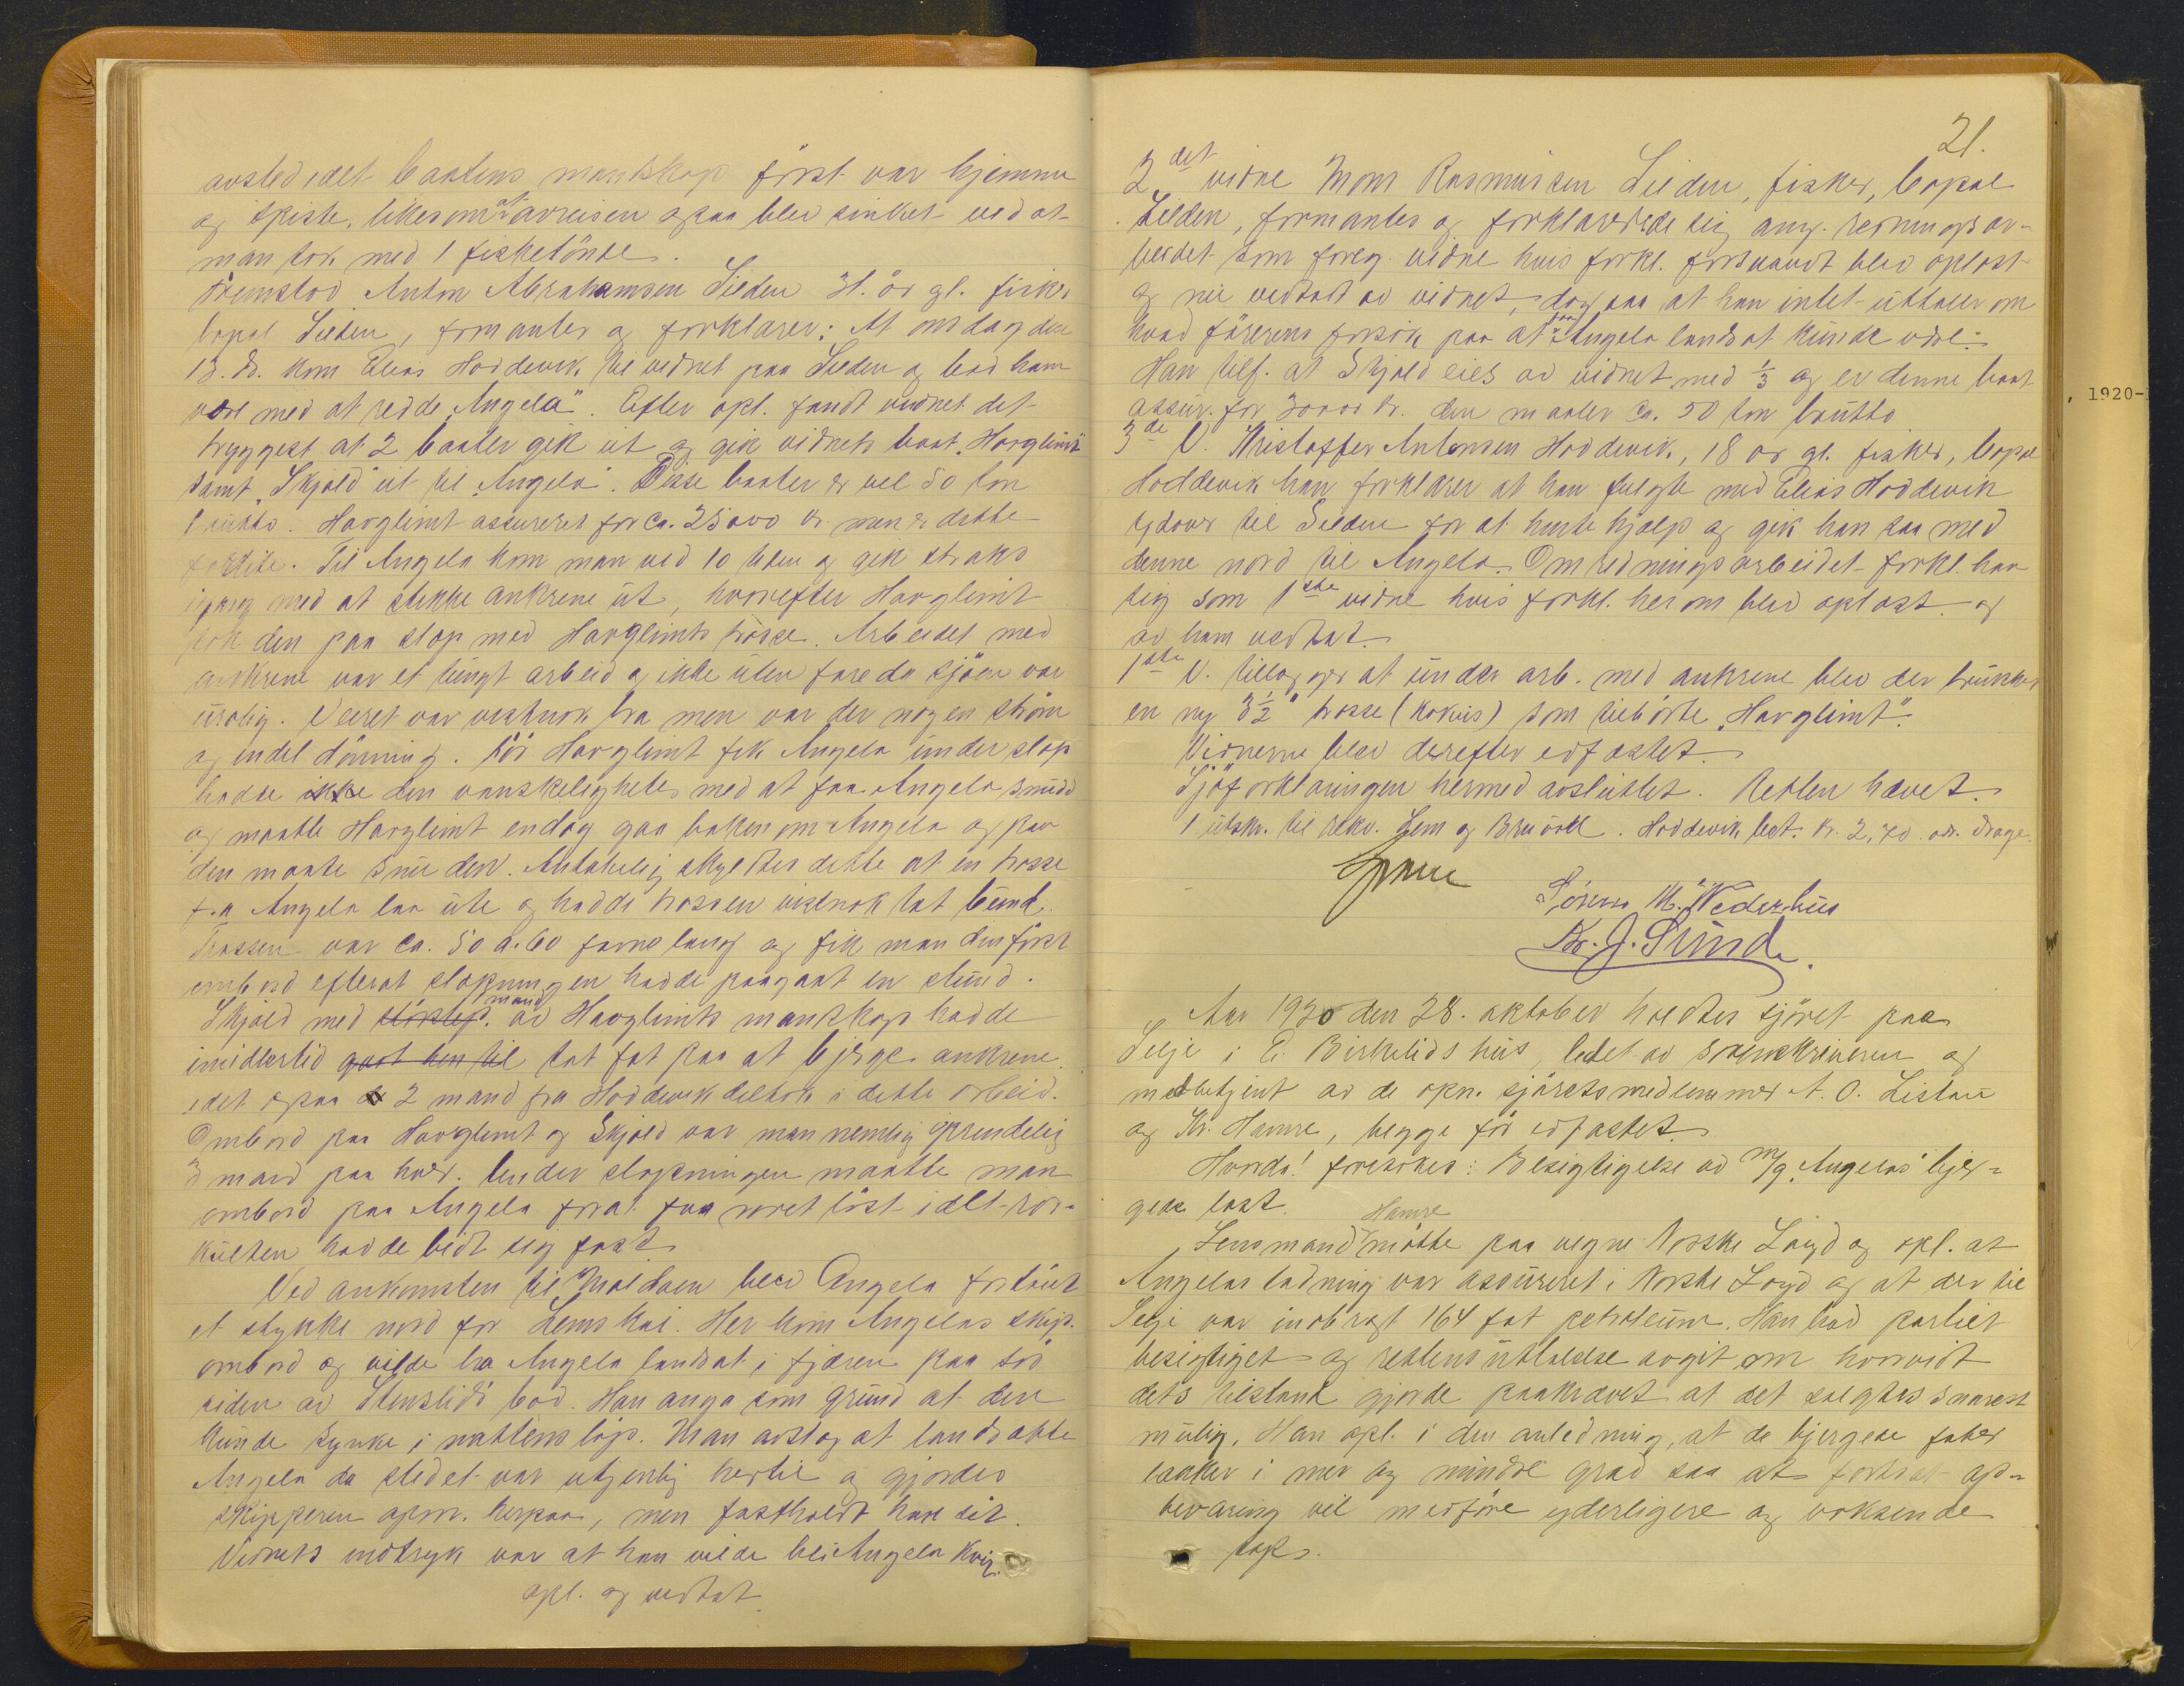 avsted idet baatens mandskap först var hjemme
og spiste, likesom at avreisen ogsaa blev sinket ved at
man tok med 1 fisketönde.
Fremstod Anton Abrahamsen Lieden 31. år gl. fisker
bopal Lieden, formantes og forklarer: At onsdag den
13. ds. kom Elias Hoddevik til vidnet paa Lieden og bad ham
være med at redde "Angela". Efter opl. fandt vidnet det
tryggest at 2 baater gik ut og gik vidnets baat "Havglimt"
samt "Skjold" ut til "Angela". Disse baater er vel 50 ton
brutto. Havglimt assureret for ca. 25000 kr. men er dette
for lite. Til Angela kom man ved 10 tiden og gik straks
igang med at stikke ankrene ut, hvorefter Havglimt
tok den paa slæp med Havglimts trosse. Arbeidet med
ankrene var et tungt arbeid og ikke uten fare da sjöen var
urolig. Veiret var vistnok bra men var der nogen ström
og endel dönning. För Havglimt fik Angela under slæp
hadde ikke den vanskeligheter med at faa Angela snudd
og maatte Havglimt endog gaa bakenom Angela og paa
den maate snu den. Antakelig skyldtes dette at en trosse
fra Angela laa ute og hadde trossen vistnok tat bund.
Trossen var ca. 50 a 60 favne lang og fik man den först
ombord efterat slæpningen hadde paagaat en stund.
Skjold med mand av Havglimts mandskap hadde
imidlertid gaat hen til tat fat paa at bjerge ankrene
idet ogsaa 2 mand fra Hoddevik deltok i dette arbeid.
Ombord paa Havglimt og Skjold var man nemlig oprindelig
3 mand paa hver. Under slæpningen maatte man
ombord paa Angela forat faa roret löst idet ror-
kulten hadde bidt sig fast.
Ved ankomsten til Moldöen blev Angela fortöiet
et stykke nord for Lems kai. Her kom Angelas skip.
ombord og vilde ha Angela landsat i fjæren paa syd
siden av Stenslids bod. Han anga som grund at den
kunde synke i nattens löp. Man avslog at landsætte
Angela da stedet var utjenlig hertil og gjordes
skipperen opm. herpaa, men fastholdt han sit.
Vidnets indtryk var at han vilde bli Angela kvit.
opl. og vedtat.
21.
2det vidne Mons Rasmussen Lieden, fisker, bopæl
Lieden, formantes og forklarer sig ang. redningsar-
beidet som foreg. vidne hvis forkl. forsaavidt blev oplæst
og nu vedtat av vidnet, dog saa at han intet uttaler om
hvad förerens forsök paa at faa Angela landsat kunde være.
Han tilf. at Skjold eies av vidnet med 1/3 og er denne baat
assur. for 30000 kr. den maaler ca. 50 ton brutto
3de V. Kristoffer Antonsen Hoddevik, 18 år gl. fisker, bopæl
Hoddevik han forklarer at han fulgte med Elias Hoddevik
sydover til Lieden for at hente hjælp og gik han saa med
denne nord til Angela. Om redningsarbeidet forkl. han
sig som 1ste vidne hvis forkl. herom blev oplæst og
av ham vedtat.
1ste V. tillægger at under arb. med ankrene blev der brukket
en ny 3½" trosse (kokus) som tilhörte "Havglimt".
Vidnerne blev derefter edfæstet.
Sjöforklaringen hermed avsluttet. Retten hævet.
1 utskr. til rekv. Lem og Bruvoll. Hoddevik bet. kr. 2,70
Sörenn M. Nederhus
Kr. J. Sunde.
Aar 1920 den 28. oktober holdtes sjöret paa
Selje i E. Birkelids hus ledet av sorenskriveren og
medbetjent av de opn. sjöretsmedlemmer A. O. Listau
og Kr. Hamre, begge för edfæstet.
Hvorda! foretokes: Besigtigelse av m/g "Angelas" bjer-
gede last.
Lensmand Hamre mötte paa vegne Norske Loyd og opl. at
Angelas ladning var assureret i Norske Loyd og at der til
Selje var indbragt 164 fat petroleum. Han bad partiet
besigtiget og rettens uttalelse avgit om hvorvidt
dets tilstand gjorde paakrævet at det sælgtes snarest
mulig. Han opl. i den anledning, at de bjergede fater
lækker i mer og mindre grad saa at fortsat op-
bevaring vil medföre yderligere og voksende
tap.
, 1920-1